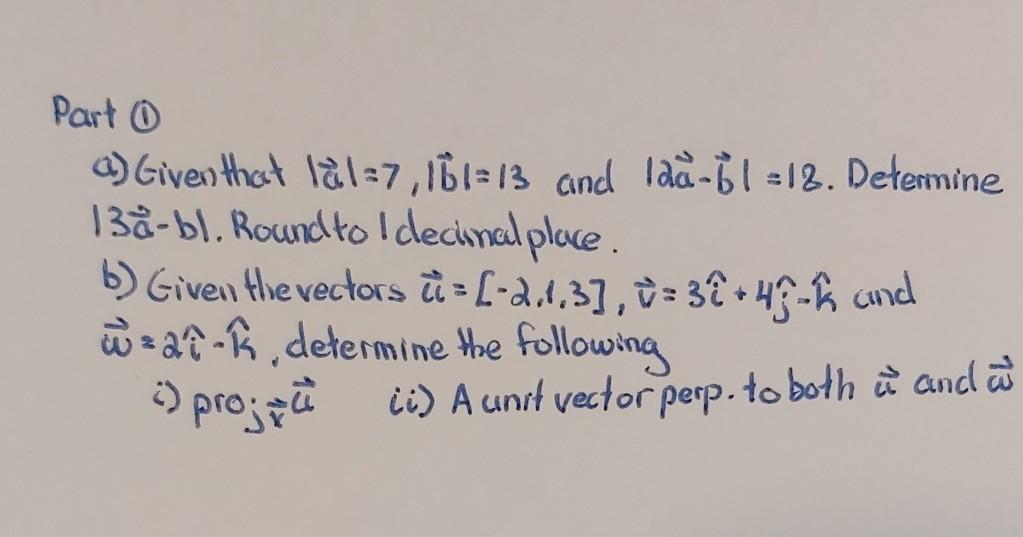 Part ①
a) Given that |a⃗|=7, |b⃗|=13 and |2a⃗-b⃗|=18. Determine
|3a⃗-b|. Round to 1 decimal place.
b) Given the vectors u⃗=[-2,1,3], v⃗=3î+4ĵ-k̂ and
w⃗=2î-k̂, determine the following
i) proj_v⃗ u⃗ ii) A unit vector perp. to both u⃗ and w⃗